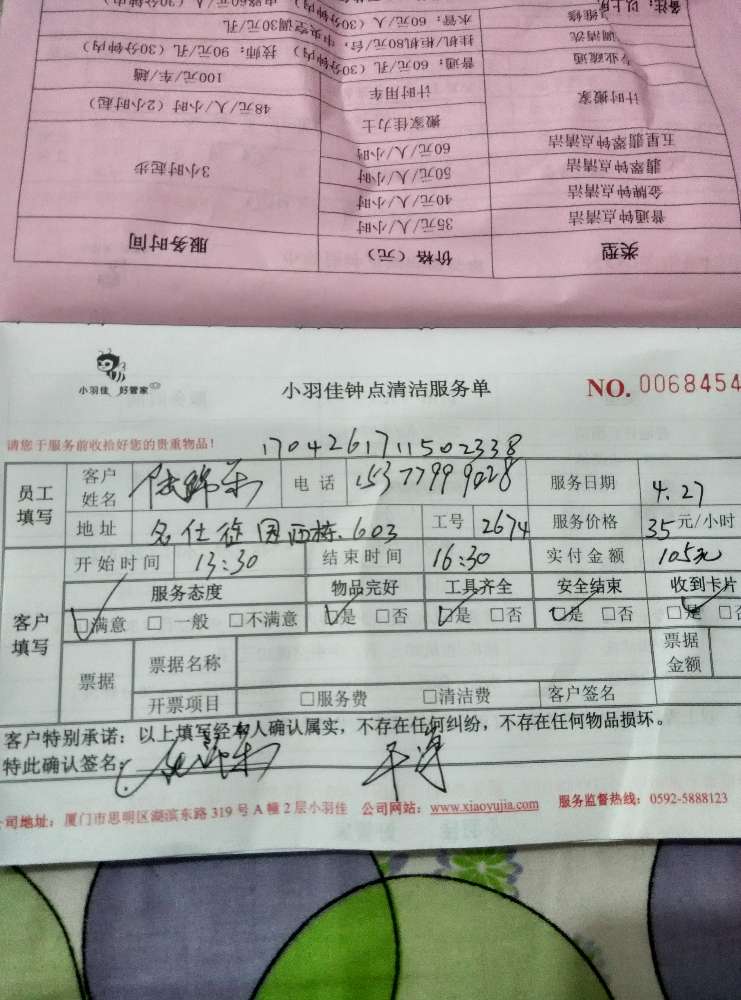 类型 价格（元） 服务时间
普通钟点清洁 35元/人/小时 3小时起步
金牌钟点清洁 40元/人/小时
翡翠钟点清洁 50元/人/小时
五星翡翠钟点清洁 60元/人/小时
计时搬家 搬家佳力士 48元/人/小时（2小时起）
计时用车 100元/车/趟
专业疏通 普通：60元/孔（30分钟内） 技师：90元/孔（30分钟内）
调清洗 挂机/柜机80元/台，中央空调30元/孔
维修 水管：60元/人（30分钟内）
备注：以上
小羽佳 好管家
小羽佳钟点清洁服务单
NO. 0068454
请您于服务前收拾好您的贵重物品！
1704261711502338
员工填写 客户姓名 电话 15377999028 服务日期 4.27
地址 603 工号 2674 服务价格 35元/小时
开始时间 13:30 结束时间 16:30 实付金额 105元
客户填写 服务态度 物品完好 工具齐全 安全结束 收到卡片
□满意 □一般 □不满意 □是 □否 □是 □否 □是 □否 □是 □否
票据 票据名称 票据金额
开票项目 □服务费 □清洁费 客户签名
客户特别承诺：以上填写经本人确认属实，不存在任何纠纷，不存在任何物品损坏。
特此确认签名： 干净
公司地址：厦门市思明区湖滨东路 319 号 A 幢 2 层小羽佳 公司网站：www.xiaoyujia.com 服务监督热线：0592-5888123